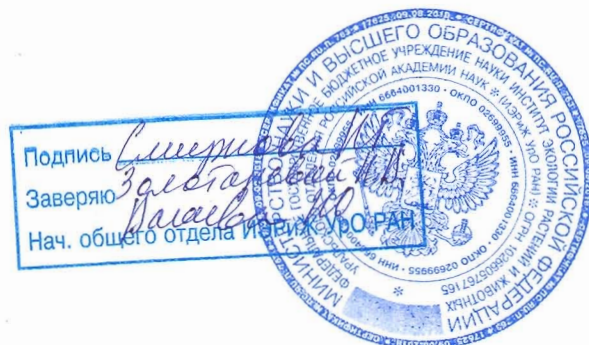 Подпись Смирнова Н.Г.
Заверяю Золотаревой Н.В.
Нач. общего отдела ИЭРиЖ УрО РАН
МИНИСТЕРСТВО НАУКИ И ВЫСШЕГО ОБРАЗОВАНИЯ РОССИЙСКОЙ ФЕДЕРАЦИИ
ФЕДЕРАЛЬНОЕ ГОСУДАРСТВЕННОЕ БЮДЖЕТНОЕ УЧРЕЖДЕНИЕ НАУКИ ИНСТИТУТ ЭКОЛОГИИ РАСТЕНИЙ И ЖИВОТНЫХ
УРАЛЬСКОГО ОТДЕЛЕНИЯ РОССИЙСКОЙ АКАДЕМИИ НАУК * (ИЭРиЖ УрО РАН) * ОГРН 1026605767165
ИНН 6664001330 • ОКПО 02699955 • ИНН 6664001330 • ОКПО 02699955